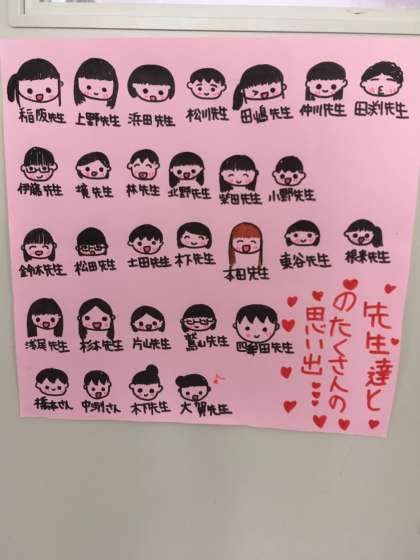 稲阪先生 上野先生 浜田先生 松川先生 田嶋先生 仲川先生 田渕先生
伊藤先生 横先生 林先生 北野先生 柴田先生 小野先生
鈴木先生 松田先生 土田先生 木下先生 本田先生 東谷先生 根来先生
浅尾先生 杉本先生 片山先生 鷲山先生 四牟田先生
橋本さん 中渕さん 木下先生 大賀先生
先生達と
のたくさんの
思い出